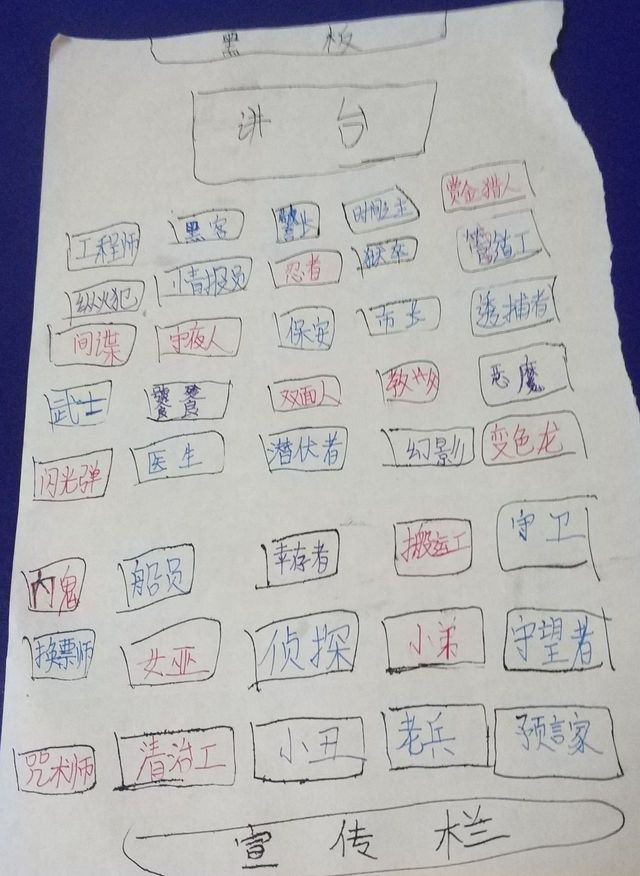 黑 板
讲 台
工程师 黑客 警长 时间之主 赏金猎人
纵火犯 小情报员 忍者 狱卒 管道工
间谍 守夜人 保安 市长 逃捕者
武士 饕餮 双面人 教父 恶魔
闪光弹 医生 潜伏者 幻影 变色龙
内鬼 船员 幸存者 搬运工 守卫
换票师 女巫 侦探 小弟 守望者
咒术师 清洁工 小丑 老兵 预言家
宣 传 栏